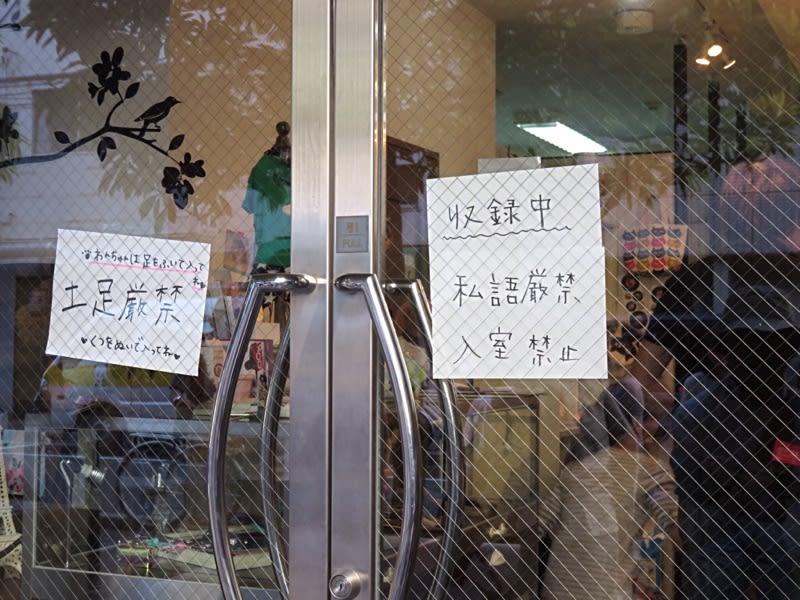 わんちゃんは足をふいて入って
ね
土足厳禁
♥くつをぬいで入ってね♥
引
PULL
収録中
私語厳禁
入室禁止